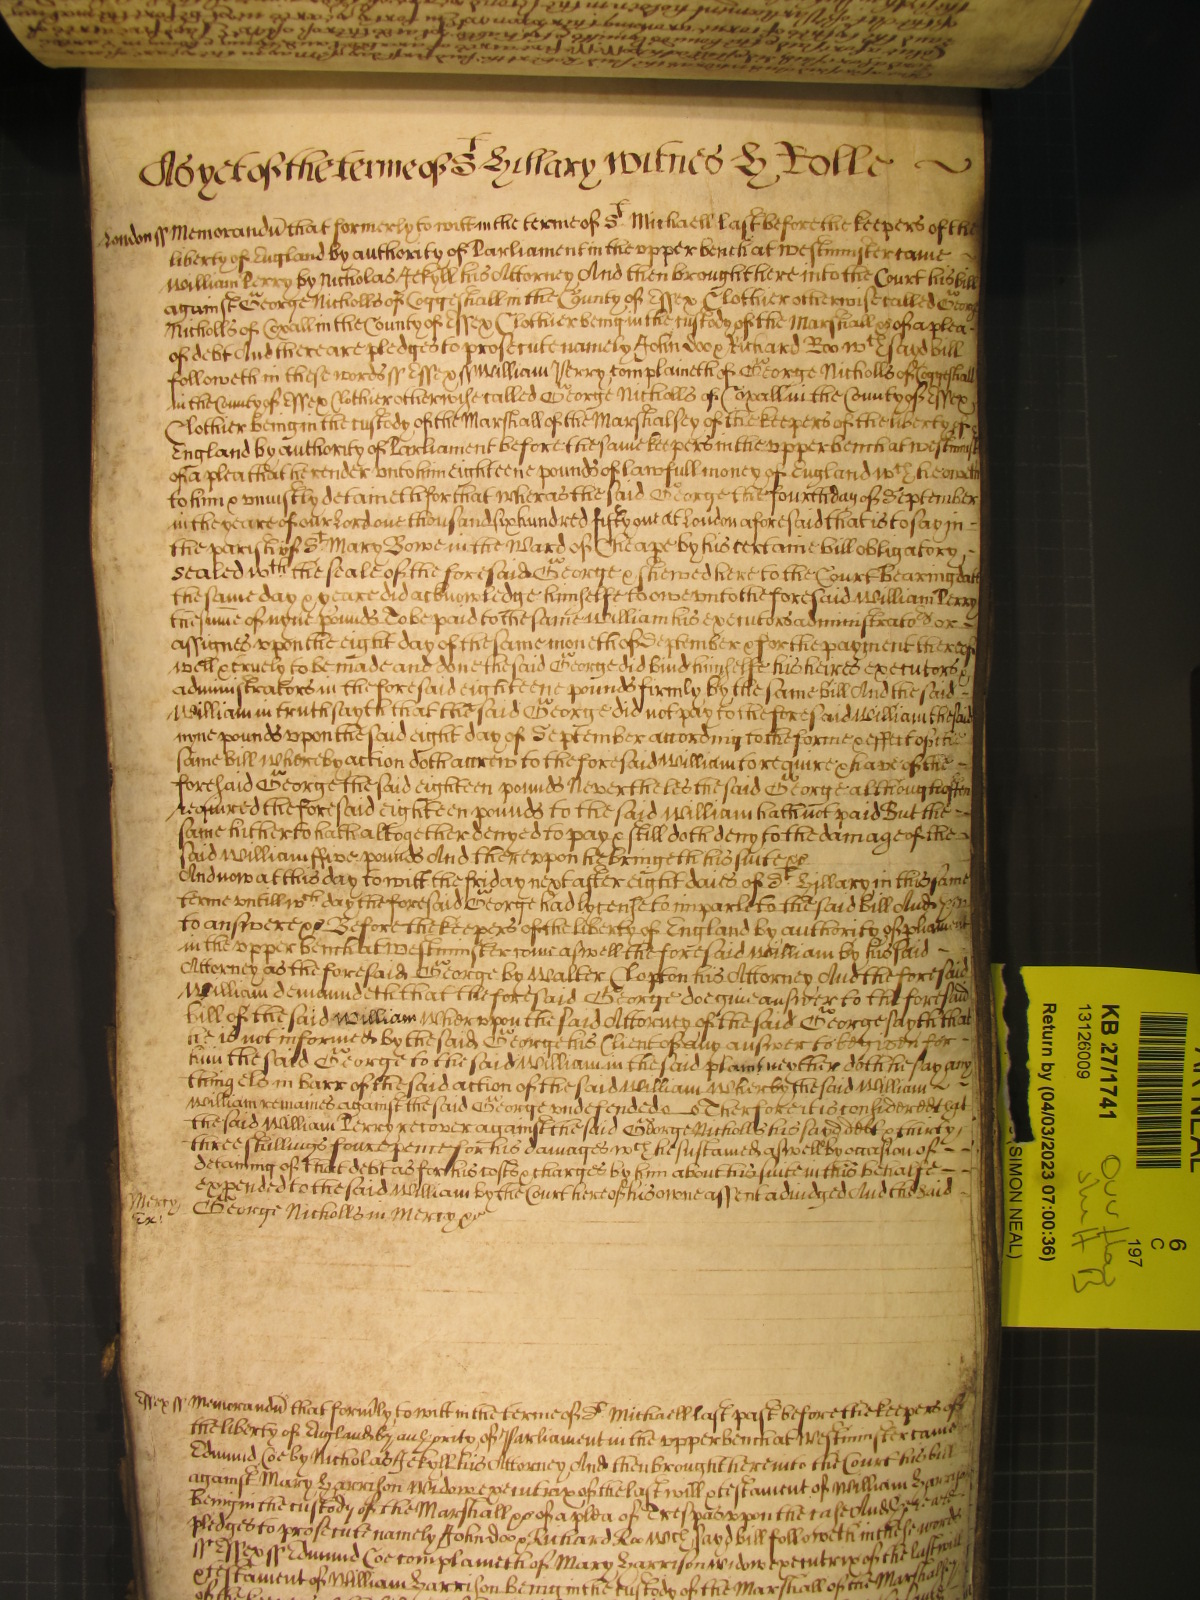 As yet of the terme of St Hillary Witnes H Rolle
London ss Memorandũ that formerly to witt in the terme of St. Michaell last before the keepers of the
liberty of England by authority of Parliament in the vpper bench at Westminster came
William Perry by Nicholas Jekyll his Attorney And then brought here into the Court his bill
against George Nicholls of Coggeshall in the County of Essex Clothier otherwise called George
Nicholls of Coxall in the County of Essex Clothier being in the custody of the Marshall &c of a plea
of debt And there are pledges to prosecute namely John Doo & Richard Roo wch said bill
followeth in these words ss Essex ss William Perry complaineth of George Nicholls of Coggeshall
in the County of Essex Clothier otherwise called George Nicholls of Coxall in the County of Essex
Clothier being in the custody of the Marshall of the Marshalsey of the keepers of the liberty of
England by authority of Parliament before the same keepers in the vpper bench at Westminster
of a plea that he render vnto him eighteene pounds of lawfull money of England wch he oweth
to him & vniustly detaineth for that wheras the said George the fourth day of September
in the yeare of our Lord one thousand six hundred fifty one at London aforesaid that is to say in
the parish of St Mary Bowe in the Ward of Cheape by his certaine bill obligatory
sealed wth the seale of the foresaid George & shewed here to the Court bearing date
the same day & yeare did acknowledge himselfe to owe vnto the foresaid William Perry
the sum̃e of nyne pounds To be paid to the same William his executors administrators or
assignes vpon the eight day of the same moneth of September & for the payment thereof
well & truely to be made and done the said George did bind himselfe his heires executors &
administrators in the foresaid eighteene pounds firmly by the same bill And the said
William in truth sayth that the said George did not pay to the foresaid William the said
nyne pounds vpon the said eight day of September according to the forme & effect of the
same bill Whereby action doth accrew to the foresaid William to require & have of the
foresaid George the said eighteen pounds Nevertheles the said George although often
required the foresaid eighteen pounds to the said William hath not paid But the
same hitherto hath altogether denyed to pay & still doth deny to the damage of the
said William ffive pounds And therevpon he bringeth his suite &c
And now at this day to witt the friday next after eight daies of St. Hillary in this same
terme vntill wch day the foresaid George had lycense to imparle to the said bill And then
to answere &c Before the keepers of the liberty of England by authority of pliament
in the vpper bench at Westminster come aswell the foresaid William by his said
Attorney as the foresaid George by Walter Clopton his Attorney And the foresaid
William demaundeth that the foresaid George doe give answer to the foresaid
bill of the said William Wherevpon the said Attorney of the said George sayth that
he is not informed by the said George his Client of any answer to be given for
him the said George to the said William in the said plaint neyther doth he say any
thing els in barr of the said action of the said William Wherby the said William
William remaines against the said George vndefended &c Therfore it is considered that
the said William Perry recover against the said George Nicholls his said debt & thirty
three shillings foure pence for his damages wch he sustained aswell by occasion of
detaining of that debt as for his costs & charges by him about his suite in this behalfe
expended to the said William by the Court here of his owne assent adiudged And the said
Mercy
George Nicholls in Mercy &c
Essex ss Memorandũ that formerly to witt in the terme of St. Michaell last past before the keepers of
the liberty of England by authority of Parliament in the vpper bench at Westminster came
Edmund Coe by Nicholas Jekyll his Attorney And then brought here into the Court his bill
against Mary Harrison Widow executrix of the last will & testament of William Harrison
being in the custody of the Marshall &c of a plea of Trespas vpon the case And there are
pledges to prosecute namely John Doo & Richard Roo wch said bill followeth in these words
ss Essex ss Edmund Coe complaineth of Mary Harrison widow executrix of the last will
& testament of William Harrison being in the custody of the Marshall of the Marshalsey
KB 27/1741
13126009
Return by (04/03/2023 07:00:36)
(SIMON NEAL)
6
C
197